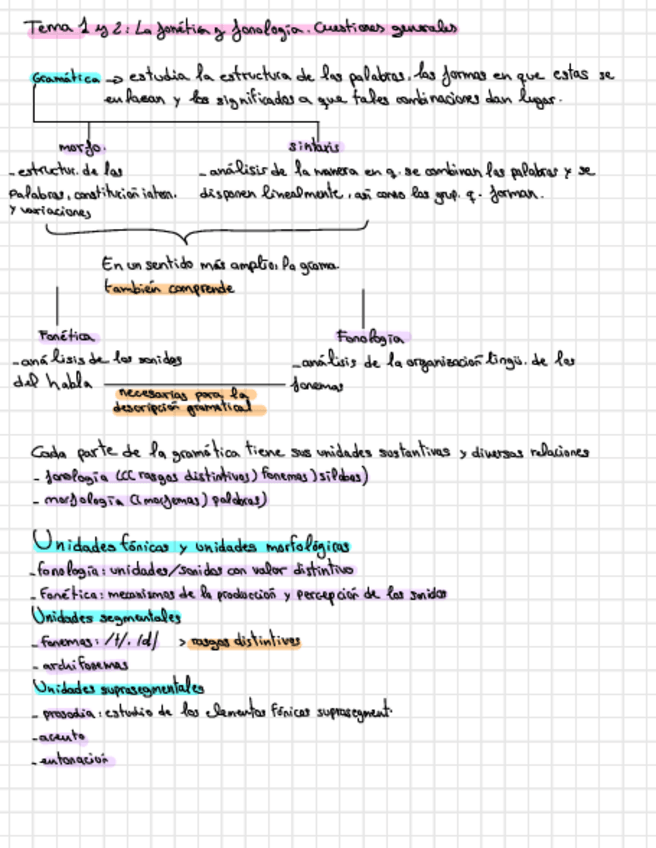 Tema 1 y 2: La fonética y fonología. Cuestiones generales
Gramática -> estudia la estructura de las palabras, las formas en que estas se
enlazan y los significados a que tales combinaciones dan lugar.
morfo.
sintaxis
- estructur. de las
palabras, constitución intern.
y variaciones
- análisis de la manera en q. se combinan las palabras y se
disponen linealmente, así como los grup. q. forman.
En un sentido más amplio, la grama.
también comprende
Fonética
Fonología
- análisis de los sonidos
del habla
necesarias para la
descripción gramatical
- análisis de la organización lingü. de los
fonemas
Cada parte de la gramática tiene sus unidades sustantivas y diversas relaciones
- fonología (((rasgos distintivos) fonemas) sílabas)
- morfología ((morfemas) palabras)
Unidades fónicas y unidades morfológicas
- fonología: unidades/sonidos con valor distintivo
- Fonética: mecanismos de la producción y percepción de los sonidos
Unidades segmentales
- fonemas: /t/, /d/ > rasgos distintivos
- archifonemas
Unidades suprasegmentales
- prosodia: estudio de los elementos fónicos suprasegment.
- acento
- entonación